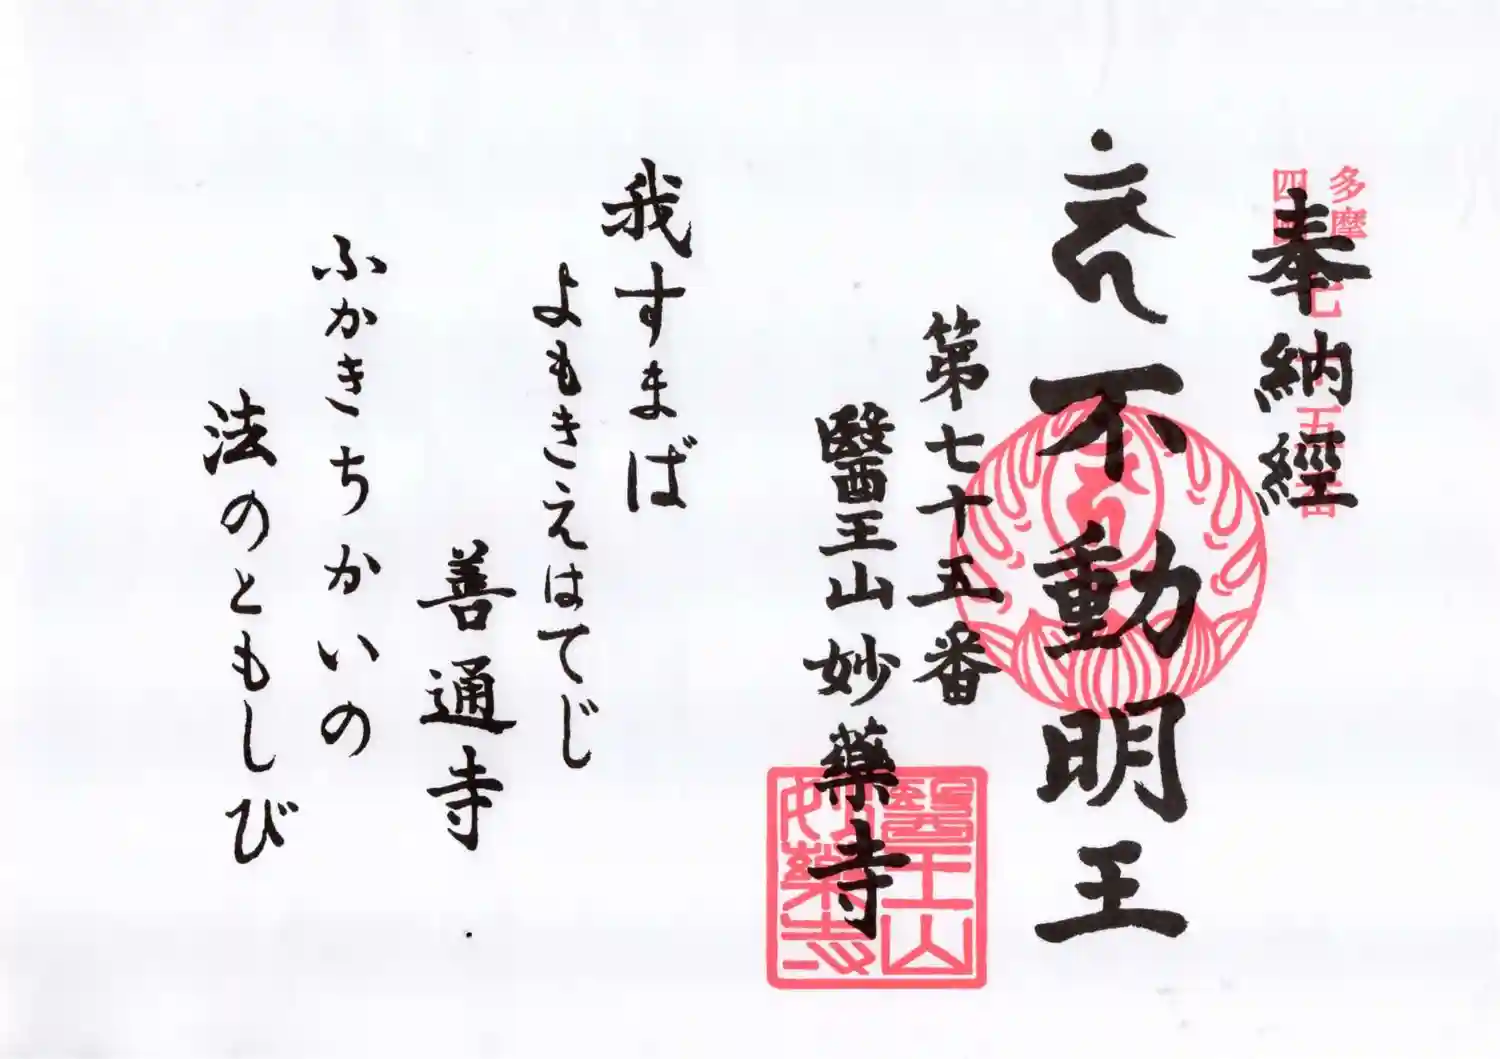 奉納經
多摩
四國
七十五番
不動明王
第七十五番
醫王山妙藥寺
醫王山
妙藥寺
我すまば
よもきえはてじ
善通寺
ふかきちかいの
法のともしび